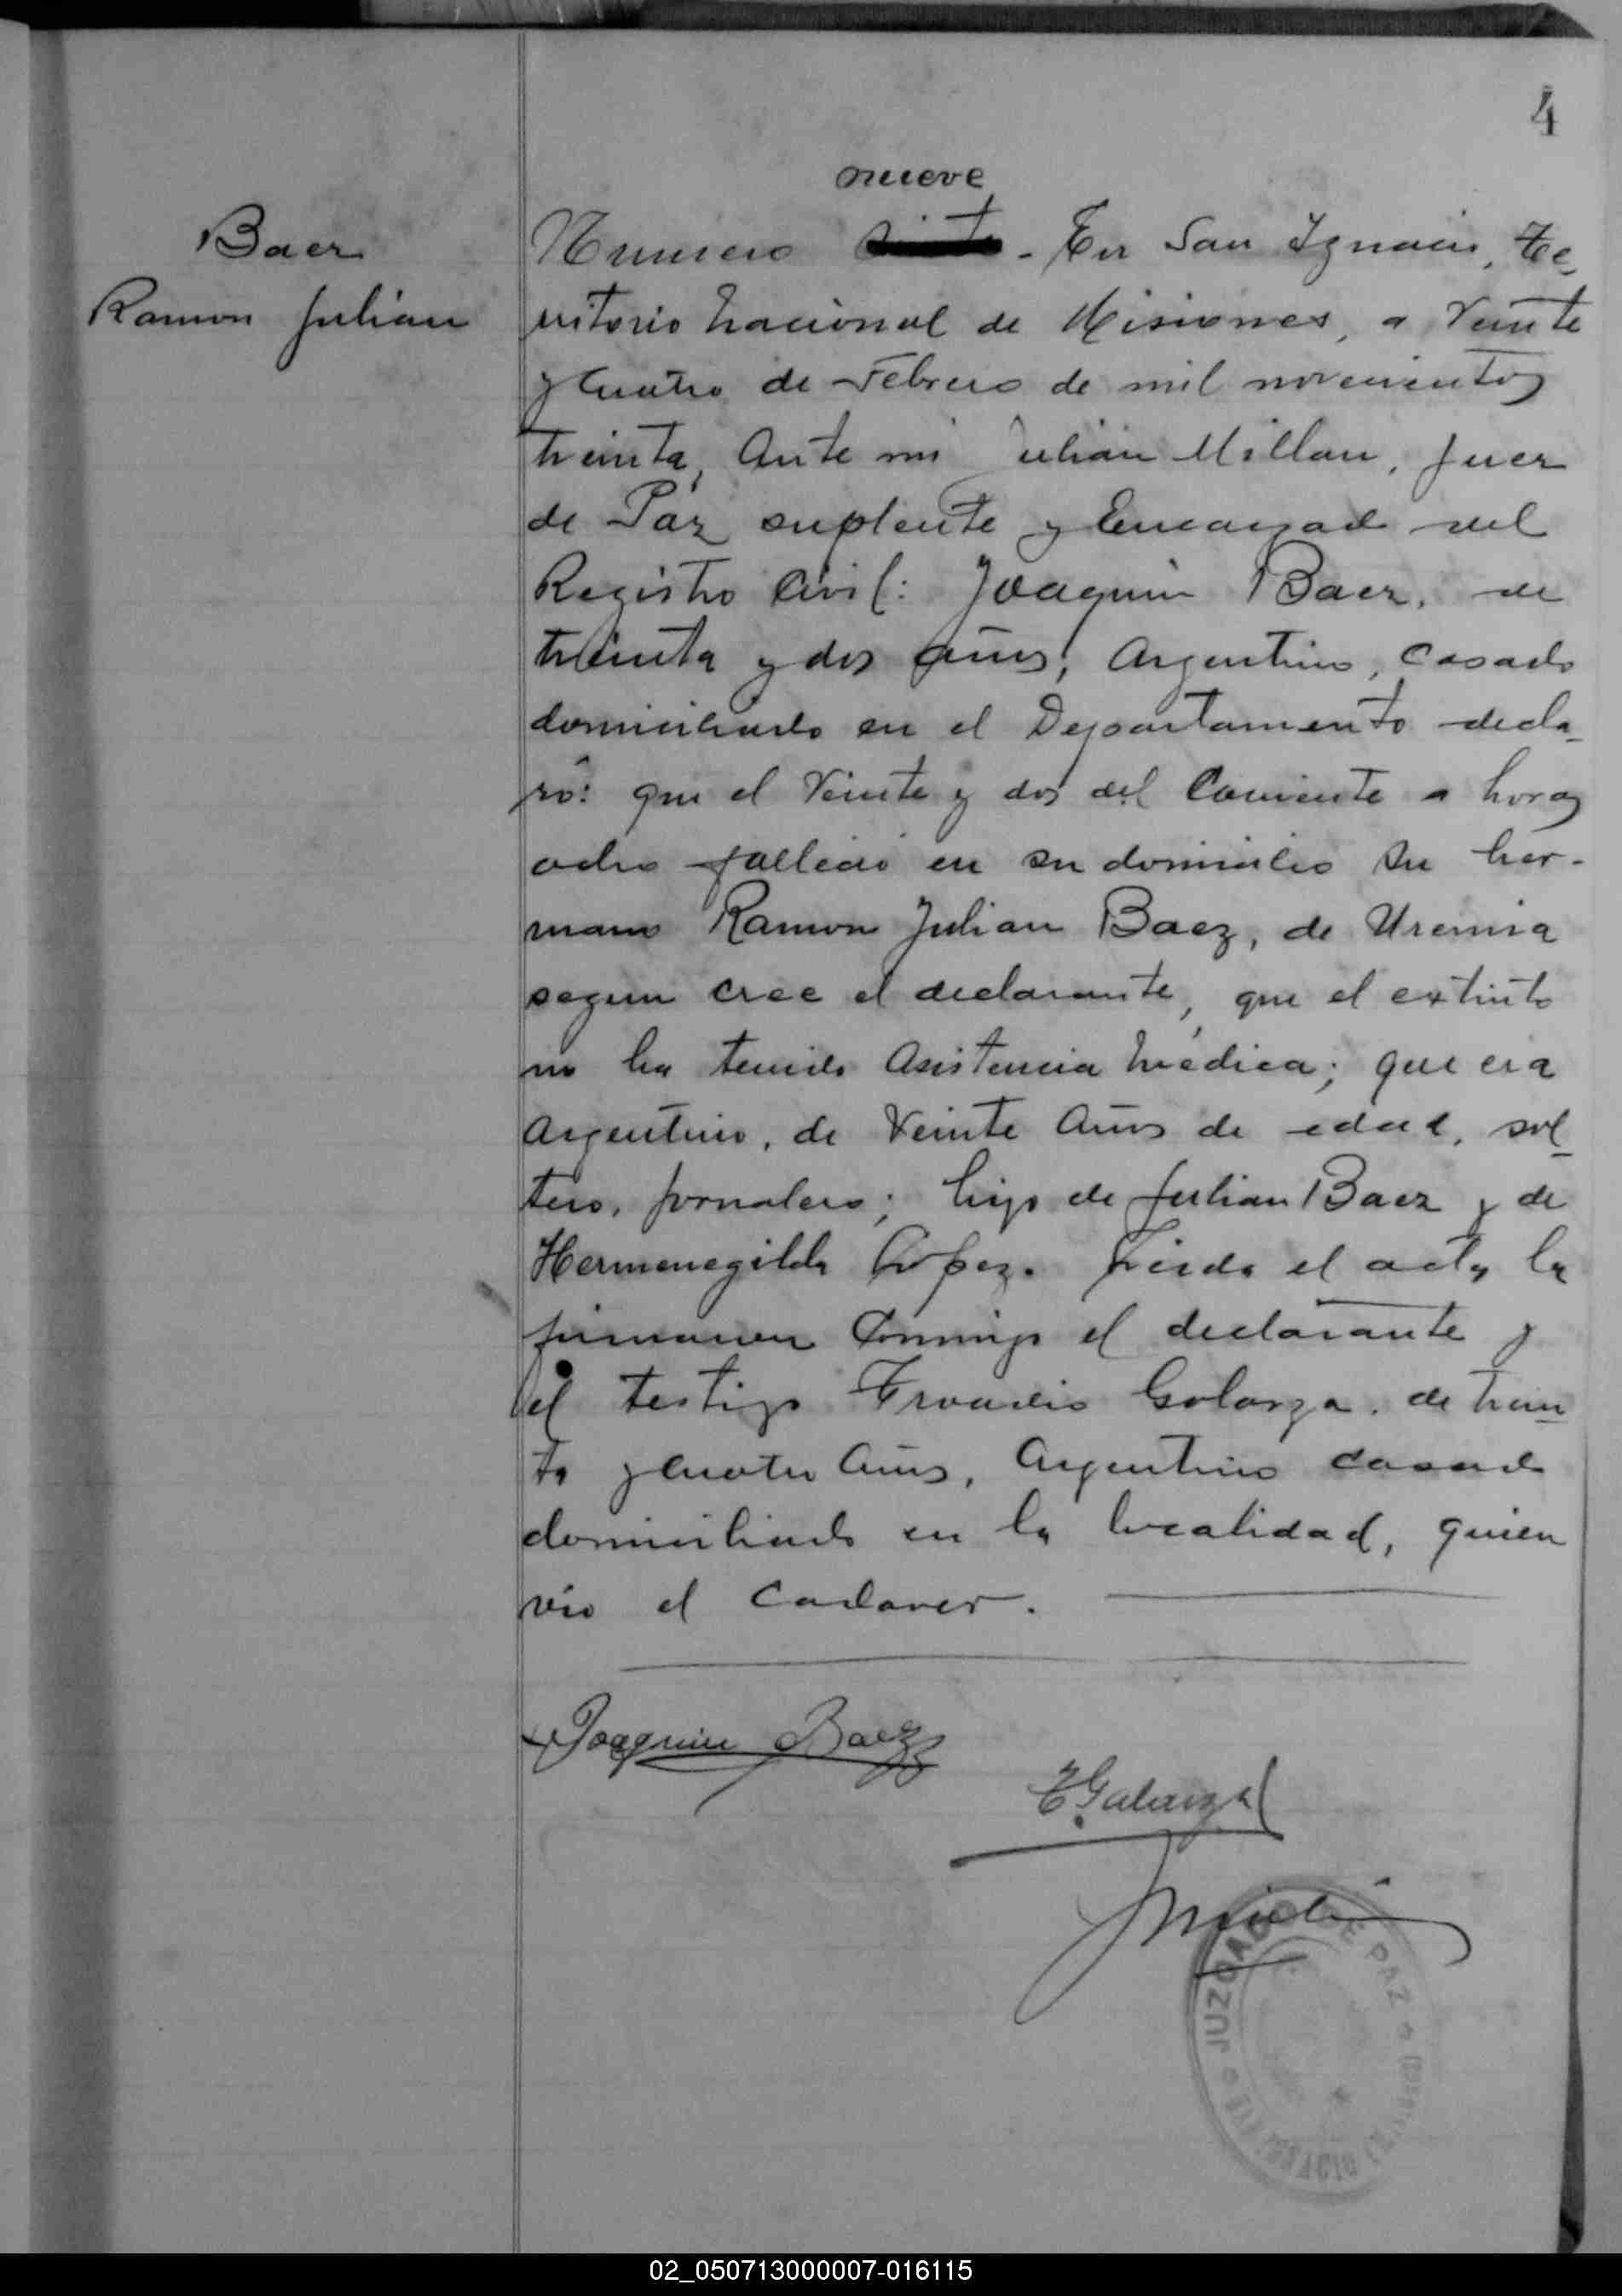 4
nueve
Baez
Ramon Julian
Numero . En San Ignacio, Te-
rritorio Nacional de Misiones, a Veinte
y Cuatro de Febrero de mil novecientos
treinta, Ante mi Julian Millan, Juez
de Paz suplente y Encargado del
Registro Civil: Joaquin Baez, de
treinta y dos años, Argentino, Casado
domiciliado en el Departamento decla-
ró: que el Veinte y dos del Corriente a horas
ocho falleció en su domicilio su her-
mano Ramon Julian Baez, de Uremia
segun cree el declarante, que el extinto
no ha tenido Asistencia Médica; que era
Argentino, de Veinte Años de edad, sol-
tero, jornalero; hijo de Julian Baez y de
Hermenegilda Lopez. Leida el acta, la
firmaron Conmigo el declarante y
el testigo Galarza, de trein-
ta y Cuatro Años, Argentino casado
domiciliado en la localidad, quien
vio el Cadaver.
Joaquin Baez
E Galarza
JUZGADO DE PAZ
SAN IGNACIO
02_050713000007-016115